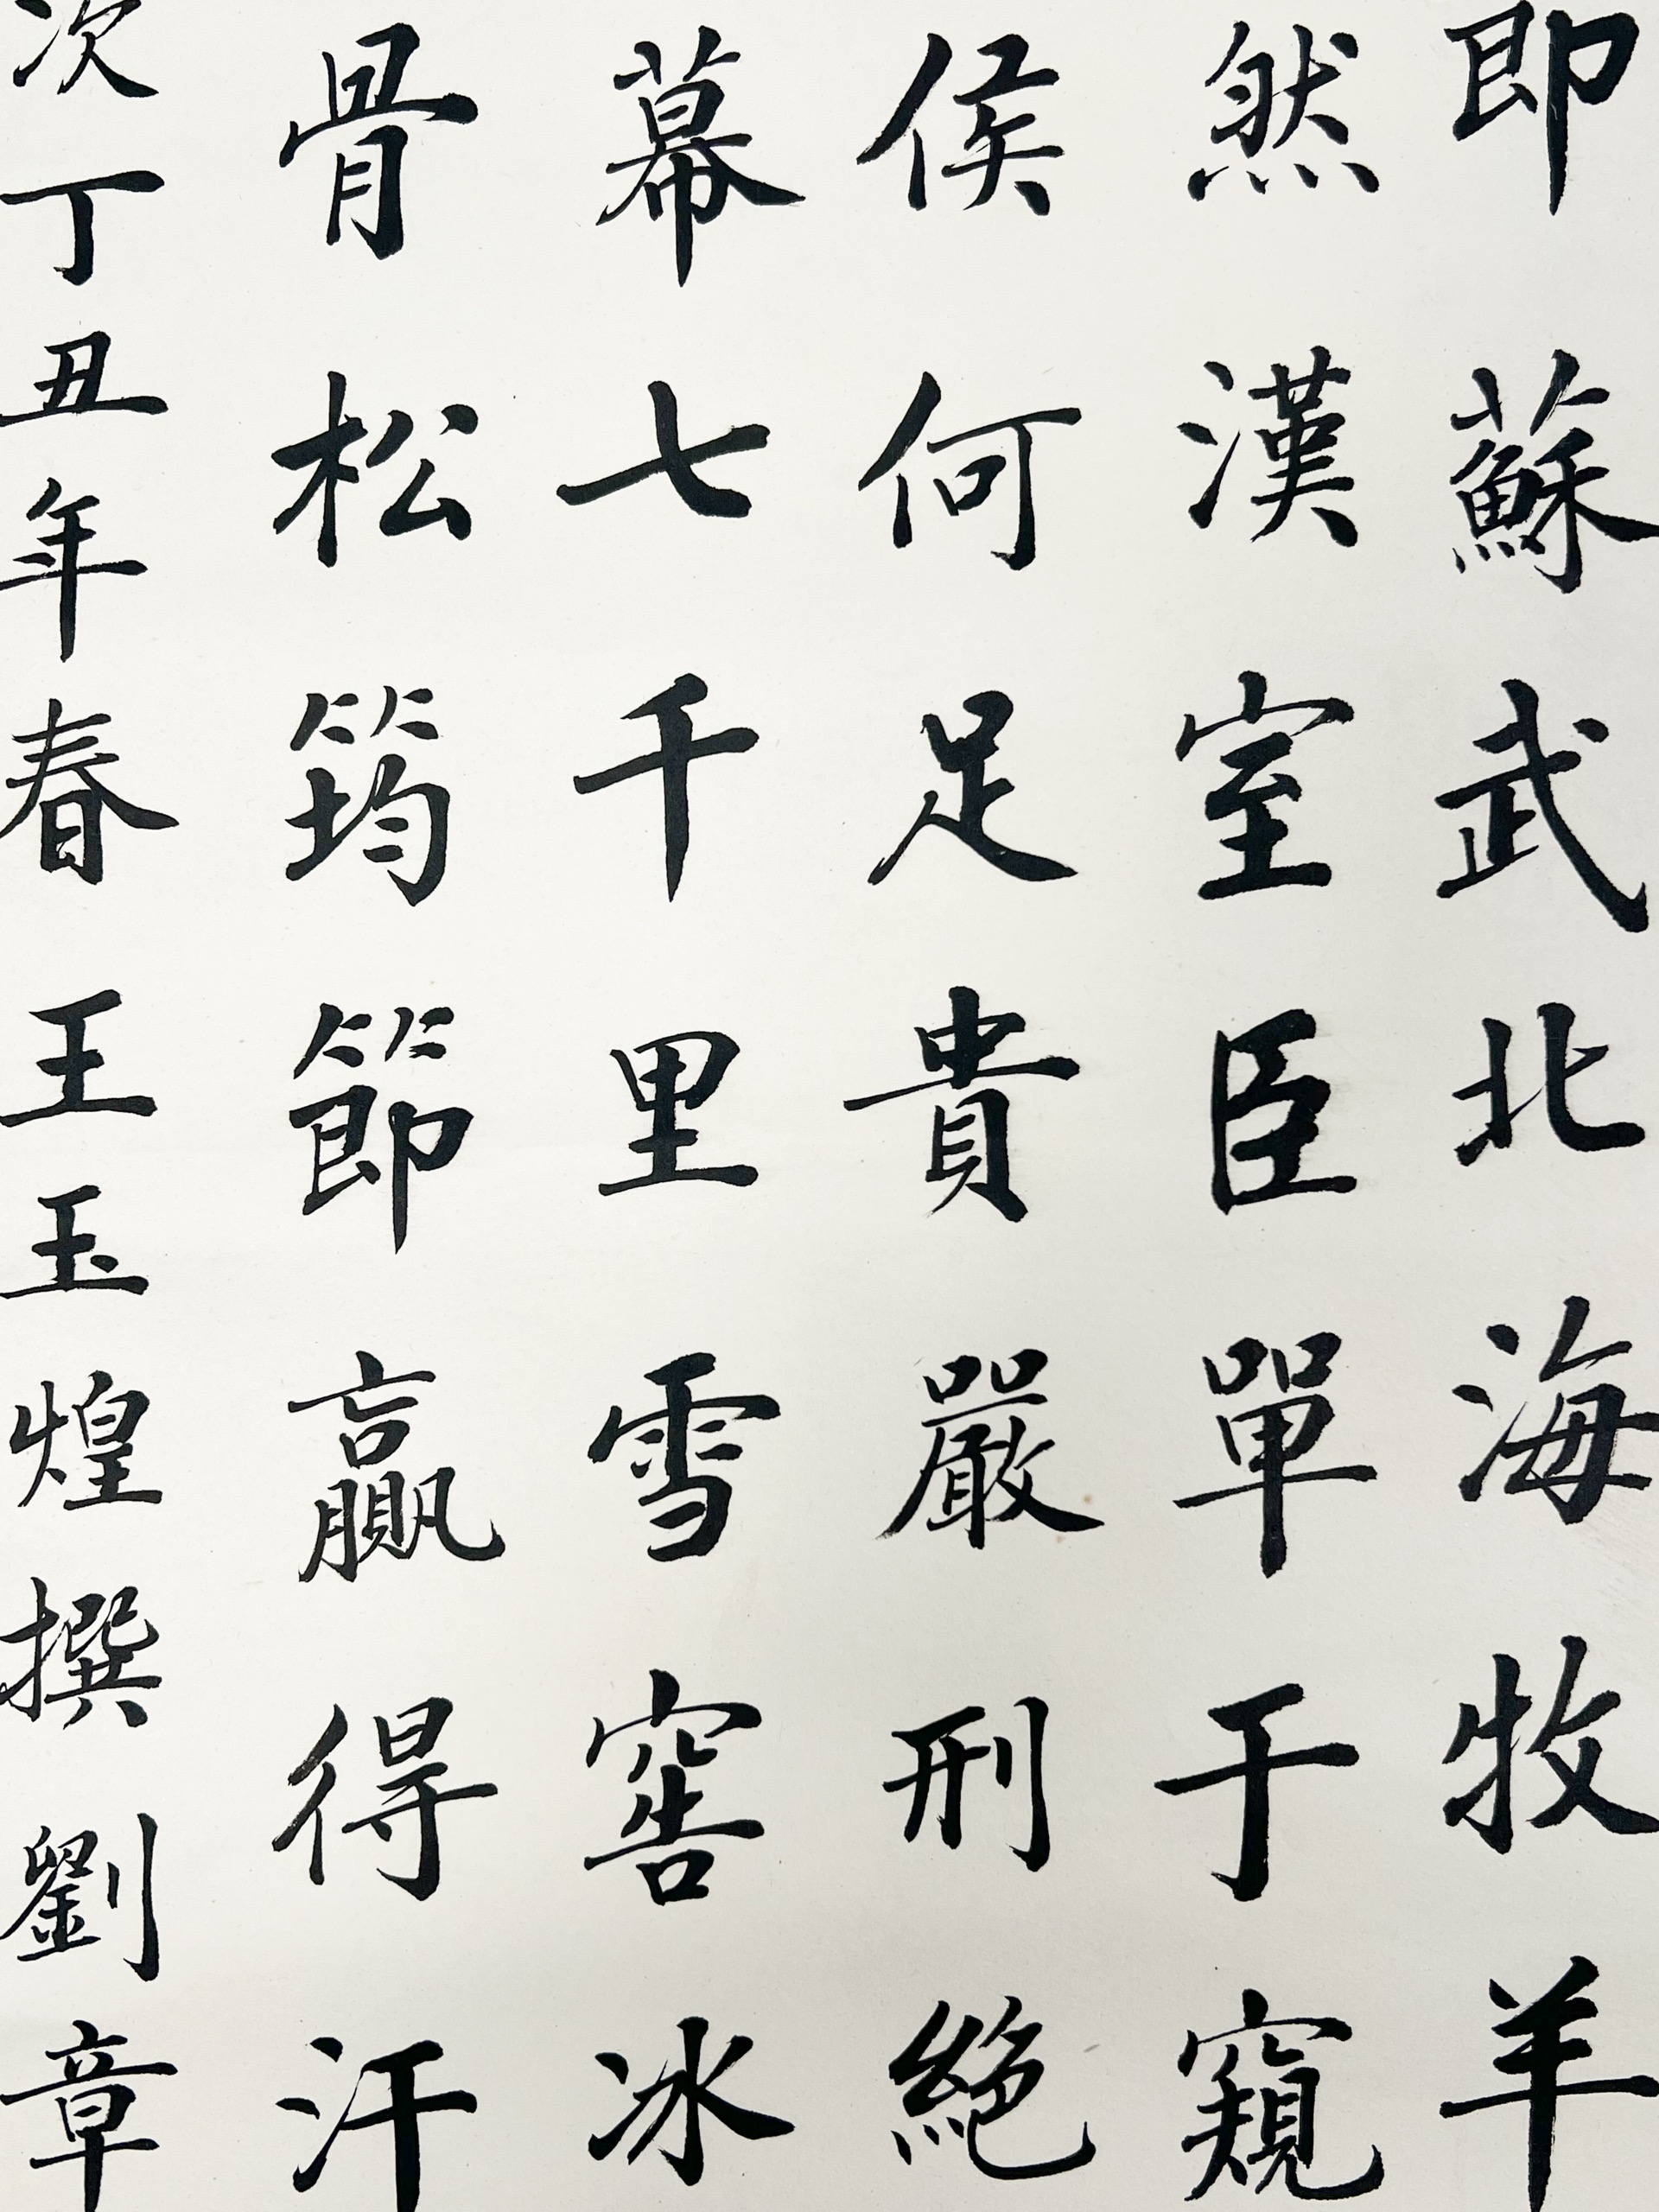 即蘇武北海牧羊
然漢室臣單于窺
侯何足貴嚴刑絕
幕七千里雪窖冰
骨松筠節贏得汗
次丁丑年春王玉煌撰劉章